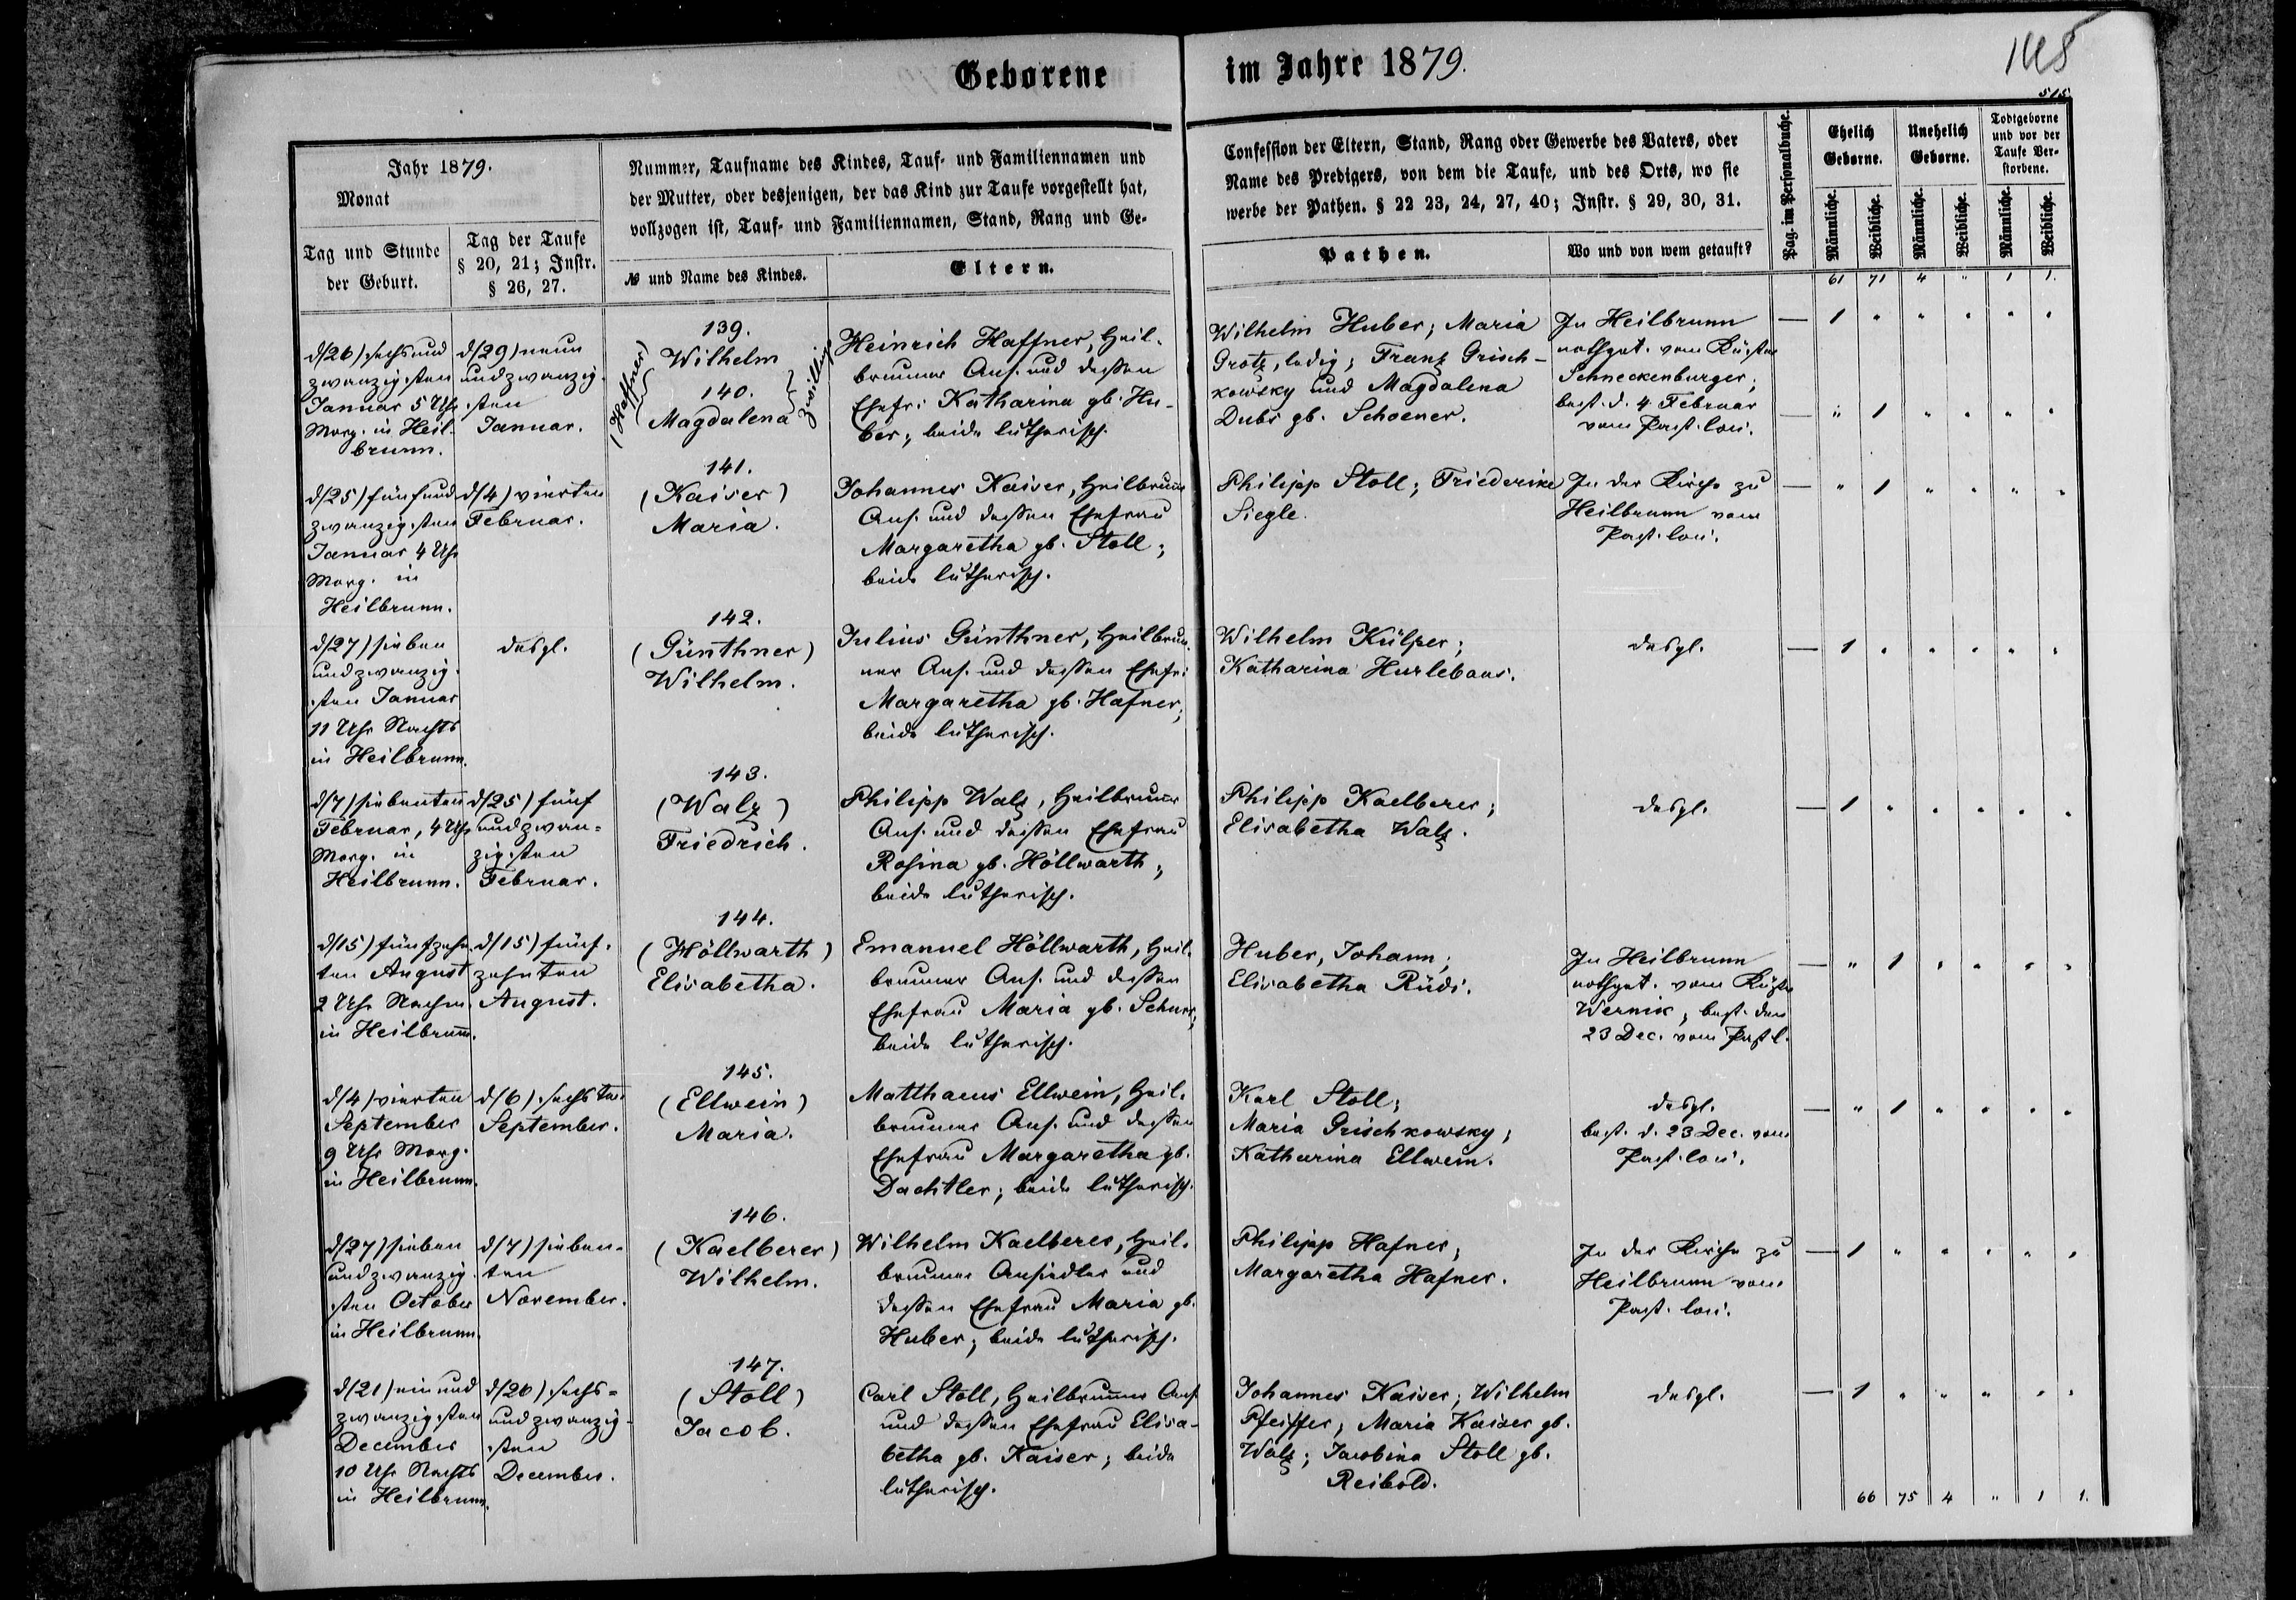 Geborene im Jahre 1879.
515
Jahr 1879.
Monat
Tag und Stunde
der Geburt.
Tag der Taufe
§ 20, 21; Instr.
§ 26, 27.
Nummer, Taufname des Kindes, Tauf- und Familiennamen und
der Mutter, oder desjenigen, der das Kind zur Taufe vorgestellt hat,
vollzogen ist, Tauf- und Familiennamen, Stand, Rang und Ge-
№ und Name des Kindes.
Eltern.
Confession der Eltern, Stand, Rang oder Gewerbe des Vaters, oder
Name des Predigers, von dem die Taufe, und des Orts, wo sie
werbe der Pathen. § 22 23, 24, 27, 40; Instr. § 29, 30, 31.
Pathen.
Wo und von wem getauft?
Pag. im Personalbuche.
Ehelich
Geborne.
Unehelich
Geborne.
Todtgeborne
und vor der
Taufe Ver-
storbene.
Männliche.
Weibliche.
Männliche.
Weibliche.
Männliche.
Weibliche.
61 71 4 " 1 1.
d/26) sechsund
zwanzigsten
Januar 5 Uhr
Morg. in Heil-
brunn.
d/29) neun
undzwanzig-
sten
Januar.
139.
(Haffner)
Wilhelm
140.
Magdalena
Zwillinge
Heinrich Haffner, Heil-
brunner Ans. und dessen
Ehefr: Katharina gb. Hu-
ber; beide lutherisch.
Wilhelm Huber; Maria
Grotz, ledig; Franz Grisch-
kowsky und Magdalena
Dubs gb. Schoener.
In Heilbrunn
nothget. vom Küster
Schneckenburger;
best. d. 4 Februar
vom Past. loci.
— 1 " " " " "
— " 1 " " " "
d/25) fünfund
zwanzigsten
Januar 4 Uhr
Morg. in
Heilbrunn.
d/4) vierten
Februar.
141.
(Kaiser)
Maria.
Johannes Kaiser, Heilbrunn
Ans. und dessen Ehefrau
Margaretha gb. Stoll;
beide lutherisch.
Philipp Stoll; Friederike
Siegle.
In der Kirche zu
Heilbrunn vom
Past. loci.
— " 1 " " " "
d/27) sieben
undzwanzig-
sten Januar
11 Uhr Nachts
in Heilbrunn.
desgl.
142.
(Günthner)
Wilhelm.
Julius Günthner, Heilbrun-
ner Ans. und dessen Ehefr:
Margaretha gb. Hafner;
beide lutherisch.
Wilhelm Külper;
Katharina Hurlebaus.
desgl.
— 1 " " " " "
d/7) siebenten
Februar, 4 Uhr
Morg. in
Heilbrunn.
d/25) fünf
undzwan-
zigsten
Februar.
143.
(Walz)
Friedrich.
Philipp Walz, Heilbrunner
Ans. und dessen Ehefrau
Rosina gb. Höllwarth;
beide lutherisch.
Philipp Kaelberer;
Elisabetha Walz.
desgl.
— 1 " " " " "
d/15) fünfzehn-
ten August
2 Uhr Nachm.
in Heilbrunn.
d/15) fünf-
zehnten
August.
144.
(Höllwarth)
Elisabetha.
Emanuel Höllwarth, Heil-
brunner Ans. und dessen
Ehefrau Maria gb. Schurr;
beide lutherisch.
Huber, Johann;
Elisabetha Rüdi.
In Heilbrunn
nothget. vom Küster
Wernik; best. den
23 Dec. vom Past. l.
— " 1 " " " "
d/4) vierten
September
9 Uhr Morg.
in Heilbrunn.
d/6) sechsten
September.
145.
(Ellwein)
Maria.
Matthaeus Ellwein, Heil-
brunner Ans. und dessen
Ehefrau Margaretha gb.
Dachtler; beide lutherisch.
Karl Stoll;
Maria Grischkowsky;
Katharina Ellwein.
desgl.
best. d. 23 Dec. vom
Past. loci.
— " 1 " " " "
d/27) sieben
undzwanzig-
sten October
in Heilbrunn.
d/7) sieben-
ten
November.
146.
(Kaelberer)
Wilhelm.
Wilhelm Kaelberer, Heil-
brunner Ansiedler und
dessen Ehefrau Maria gb.
Huber; beide lutherisch.
Philipp Hafner;
Margaretha Hafner.
In der Kirche zu
Heilbrunn vom
Past. loci.
— 1 " " " " "
d/21) einund
zwanzigsten
December
10 Uhr Nachts
in Heilbrunn.
d/26) sechs-
undzwanzig-
sten
December.
147.
(Stoll)
Jacob.
Carl Stoll, Heilbrunner Ans.
und dessen Ehefrau Elisa-
betha gb. Kaiser; beide
lutherisch.
Johannes Kaiser; Wilhelm
Pfeiffer; Maria Kaiser gb.
Walz; Jacobina Stoll gb.
Reibold.
desgl.
— 1 " " " " "
66 75 4 " 1 1.